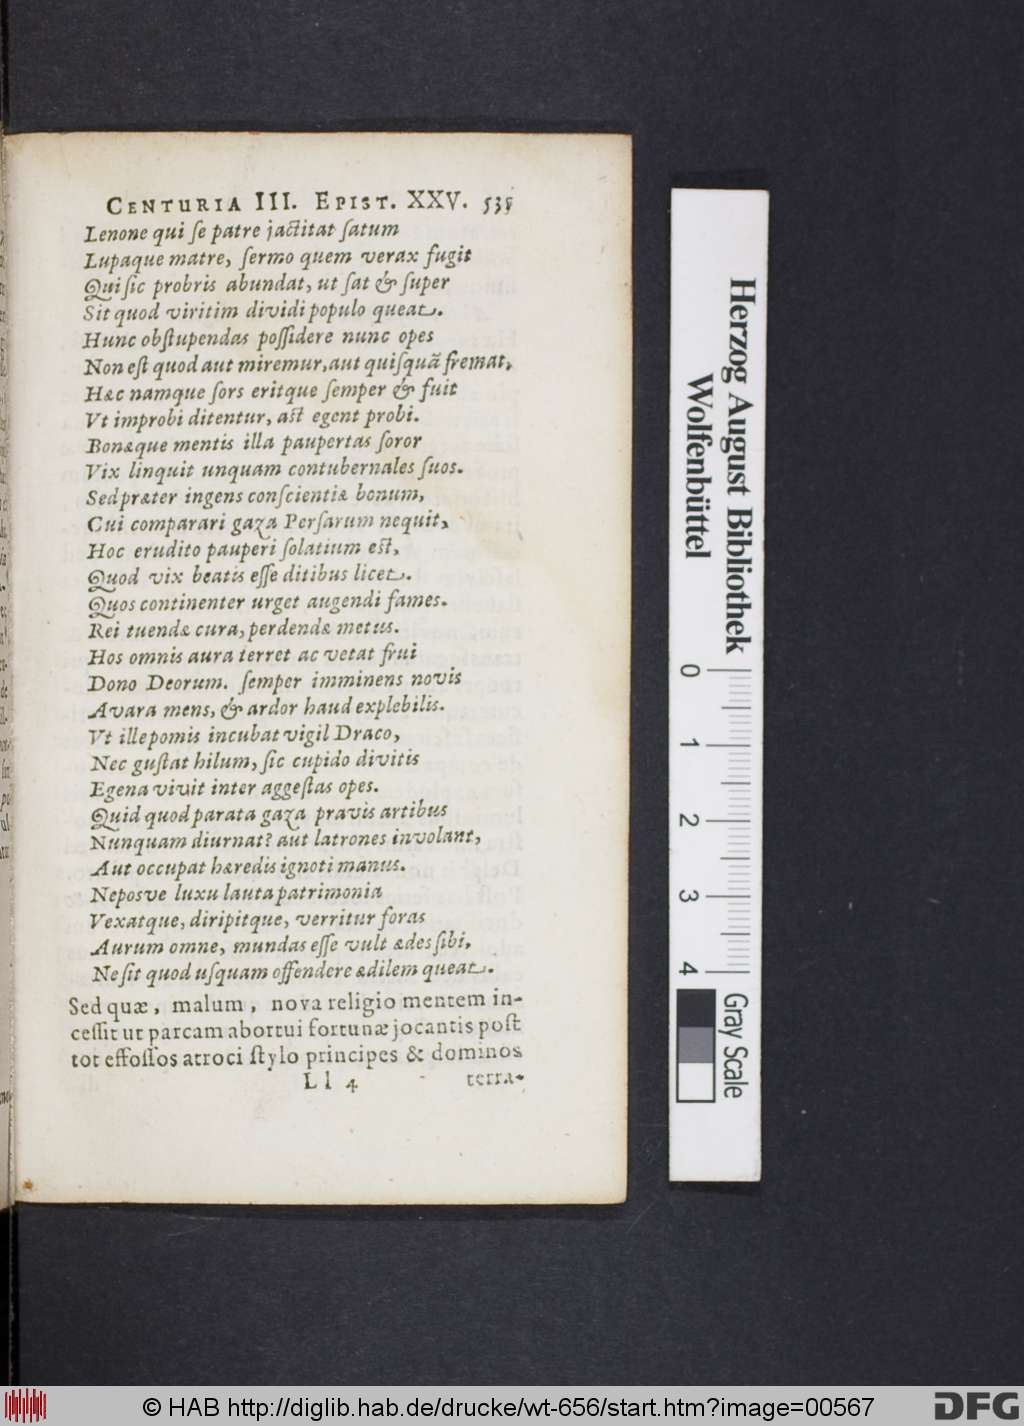 CENTURIA III. EPIST. XXV. 535
Lenone qui ſe patre jactitat ſatum
Lupaque matre, ſermo quem verax fugit
Qui ſic probris abundat, ut ſat & ſuper
Sit quod viritim dividi populo queat.
Hunc obſtupendas poſſidere nunc opes
Non eſt quod aut miremur, aut quiſquã fremat,
Hæc namque ſors eritque ſemper & fuit
Vt improbi ditentur, aſt egent probi.
Bonæque mentis illa paupertas ſoror
Vix linquit unquam contubernales ſuos.
Sed præter ingens conſcientiæ bonum,
Cui comparari gaza Perſarum nequit,
Hoc erudito pauperi ſolatium eſt,
Quod vix beatis eſſe ditibus licet.
Quos continenter urget augendi fames.
Rei tuendæ cura, perdendæ metus.
Hos omnis aura terret ac vetat frui
Dono Deorum. ſemper imminens novis
Avara mens, & ardor haud explebilis.
Vt ille pomis incubat vigil Draco,
Nec guſtat hilum, ſic cupido divitis
Egena vivit inter aggeſtas opes.
Quid quod parata gaza pravis artibus
Nunquam diurnat? aut latrones involant,
Aut occupat hæredis ignoti manus.
Neposve luxu lauta patrimonia
Vexatque, diripitque, verritur foras
Aurum omne, mundas eſſe vult ædes ſibi,
Ne ſit quod uſquam offendere ædilem queat.
Sed quæ, malum, nova religio mentem in-
ceſſit ut parcam abortui fortunæ jocantis poſt
tot effoſſos atroci ſtylo principes & dominos
Ll 4 terra-
Herzog August Bibliothek
Wolfenbüttel
0 1 2 3 4
Gray Scale
© HAB http://diglib.hab.de/drucke/wt-656/start.htm?image=00567
DFG